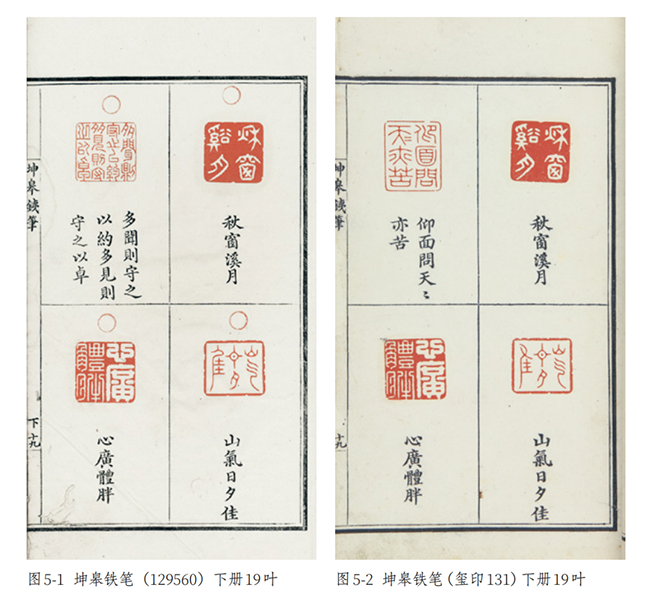 秋窗溪月
多聞則守之
以約多見則
守之以卓
山氣日夕佳
心廣體胖
坤皋銕筆
下 十九
图5-1 坤皋铁笔（129560）下册19叶
秋窗溪月
仰面問天〻
亦苦
山氣日夕佳
心廣體胖
坤皋銕筆
十九
图5-2 坤皋铁笔（玺印131）下册19叶